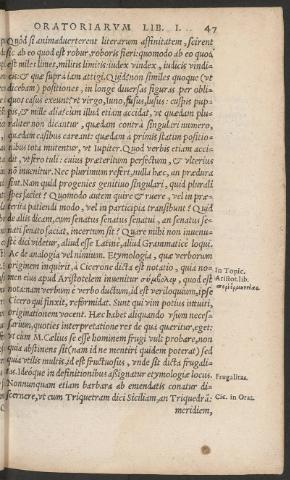 ORATORIARVM LIB. I. 47
Quòd si animaduerterent literarum affinitatem, scirent
sic ab eo quod est robur, roboris fieri: quomodo ab eo quod
est miles limes, militis limitis: iudex vindex, iudicis vindi-
cis: & quæ suprà iam attigi. Quid? non similes quoque (vt
dicebam) positiones, in longè diuersas figuras per obli-
quos casus exeunt? vt virgo, Iuno, fusus, lusus: cuspis pup-
pis, & mille aliæ: cùm illud etiam accidat, vt quædam plu-
raliter non dicantur, quædam contrà singulari numero,
quædam casibus careant: quædam à primis statim positio-
nibus tota mutentur, vt Iupiter. Quod verbis etiam acci-
dit, vt fero tuli: cuius præteritum perfectum, & vlterius
nō inuenitur. Nec plurimum refert, nulla hæc, an prædura
sint. Nam quid progenies genitiuo singulari, quid plurali
spes faciet? Quomodo autem quire & ruere, vel in præ-
terita patiendi modo, vel in participia transibunt? Quid
de aliis dicam, cum senatus senatus senatui, an senatus se-
nati senato faciat, incertum sit? Quare mihi non inuenu-
stè dici videtur, aliud esse Latinè, aliud Grammaticè loqui.
Ac de analogia vel nimium. Etymologia, quæ verborum
originem inquirit, à Cicerone dicta est notatio, quia no-
In Topic.
men eius apud Aristotelem inuenitur σύμβολον, quod est
Aristot. lib.
nota: nam verbum è verbo ductum, id est veriloquium, ipse
Cicero qui finxit, reformidat. Sunt qui vim potius intuiti,
originationem vocent. Hæc habet aliquando vsum neces-
sarium, quoties interpretatione res de qua quæritur, eget:
vt cùm M. Cælius se esse hominem frugi vult probare, non
quia abstinens sit (nam id ne mentiri quidem poterat) sed
quia vtilis multis, id est fructuosus, vnde sit dicta frugali-
tas. Ideóque in definitionibus assignatur etymologiæ locus.
Frugalitas.
Nonnunquam etiam barbara ab emendatis conatur di-
scernere, vt cum Triquetram dici Siciliam, an Triquedrā:
Cic. in Orat.
meridiem,